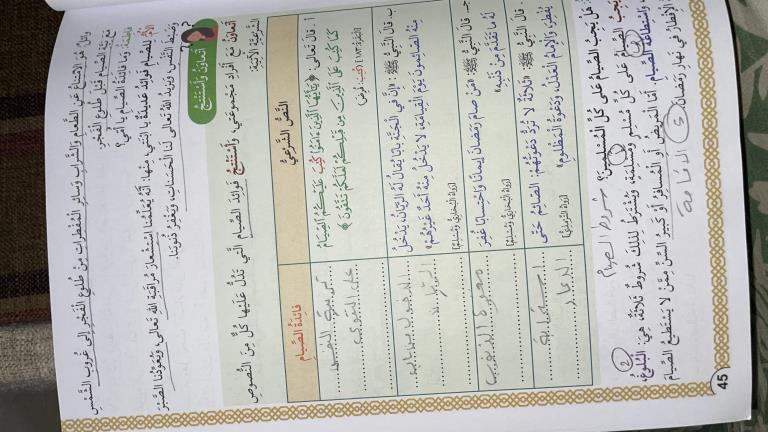 وائل: هو الامتناع عن الطَّعام والشَّراب وسائر المُفطرات من طُلوع الفَجْر إلى غُروب الشَّمس
مع نيّة الصّيام قبل طُلوع الفَجْر.
فاطمة: وما فائدة الصّيام يا أمّي؟
الأمّ: للصّيام فوائد عظيمة يا بُنتي، منها: أنّه يُعلّمنا استشعار مراقبة الله تعالى، ويُعوّدنا الصّبر
وضبط النَّفس، ويزيد الله تعالى لنا الحسنات، ويغفر ذُنوبنا.
أتعاون وأستنتج
أتعاون مع أفراد مجموعتي، وأستنتج فوائد الصّيام الّتي تدلّ عليها كلّ من النّصوص
الشّرعيّة الآتية:
النَّصُّ الشَّرعيُّ
فائدة الصّيام
أ. قال تعالى: ﴿يَا أَيُّهَا الَّذِينَ آمَنُوا كُتِبَ عَلَيْكُمُ الصِّيَامُ
كَمَا كُتِبَ عَلَى الَّذِينَ مِن قَبْلِكُمْ لَعَلَّكُمْ تَتَّقُونَ﴾
[البقرة: ١٨٣] (كُتِبَ: فُرِضَ)
تربية النفس
على التقوى
ب. قال النَّبيُّ ﷺ: «إنَّ في الجَنَّة بابًا يُقال لَهُ الرَّيّان، يَدْخُلُ
مِنْهُ الصّائمون يَوْمَ القِيامَة، لا يَدْخُلُ مِنْهُ أَحَدٌ غَيْرُهُمْ»
[رواه البخاري ومسلم]
الدخول من باب
الريان
جـ. قال النَّبيُّ ﷺ: «مَنْ صامَ رَمَضانَ إيمانًا واحْتِسابًا غُفِرَ
لَهُ ما تَقَدَّمَ مِنْ ذَنْبِهِ»
[رواه البخاري ومسلم]
مغفرة الذنوب
د. قال النَّبيُّ ﷺ: «ثَلاثَةٌ لا تُرَدُّ دَعْوَتُهُمْ: الصّائِمُ حَتّى
يُفْطِرَ، والإمامُ العادِلُ، ودَعْوَةُ المَظْلومِ»
[رواه الترمذي]
استجابة
الدعاء
هل يجب الصّيام على كلّ المسلمين؟
شروط الصيام
يجب الصّيام على كلّ مُسلم ومُسلمة، ويُشترط لذلك شروط ثلاثة، هي: البُلوغ،
واستطاعة الصّيام. أمّا المريض أو المُسافر أو كبير السّنّ ممّن لا يستطيع الصّيام
الإفطار في نهار رمضان.
الاقامة
45